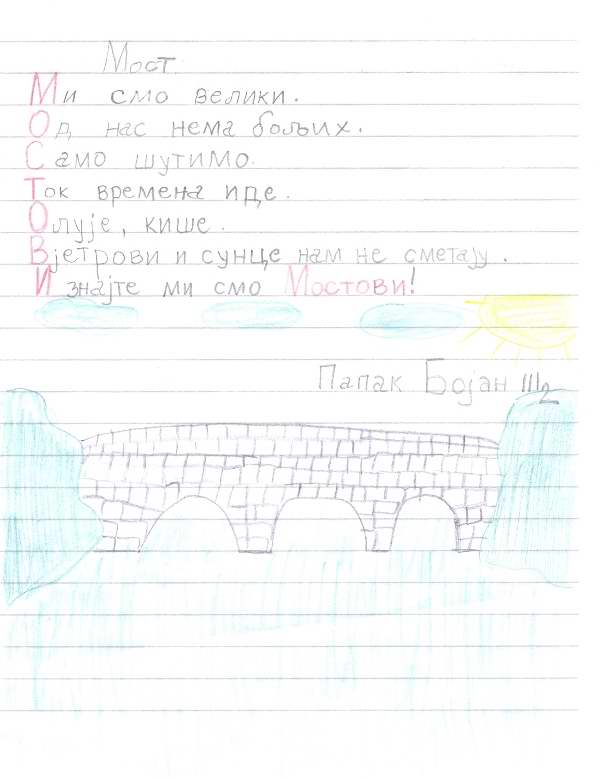 Мост
Ми смо велики.
Од нас нема бољих.
Само шутимо.
Ток времена иде.
Олује, кише.
Вјетрови и сунце нам не сметају.
И знајте ми смо Мостови!
Папак Бојан III2